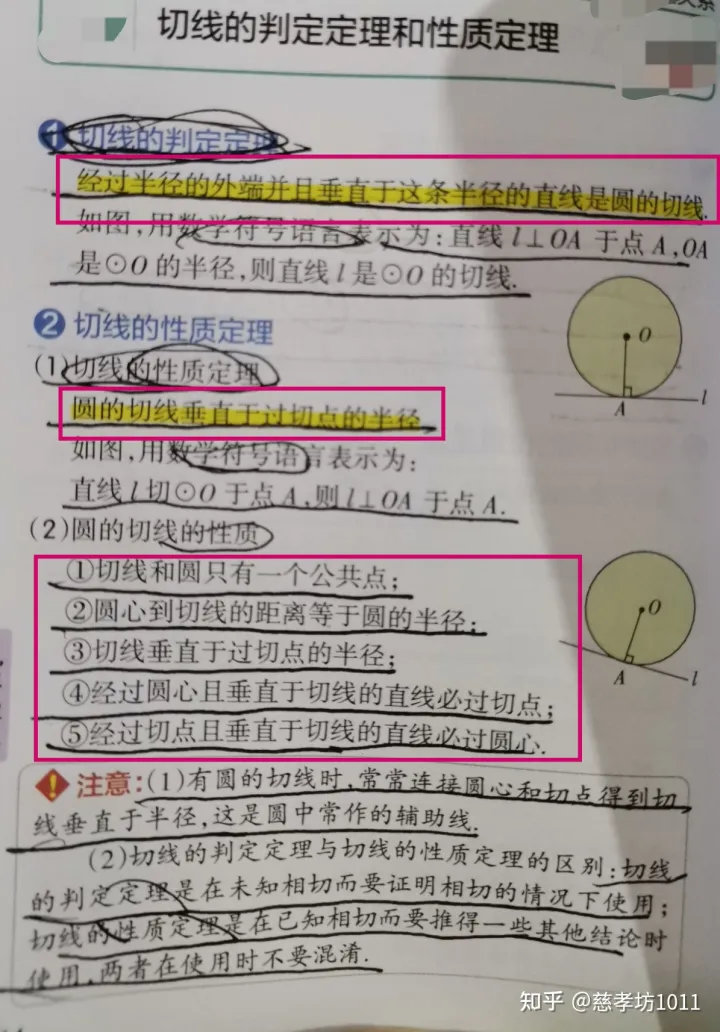 切线的判定定理和性质定理
1 切线的判定定理
经过半径的外端并且垂直于这条半径的直线是圆的切线.
如图,用数学符号语言表示为:直线l⊥OA于点A,OA
是⊙O的半径,则直线l是⊙O的切线.
O
A
l
2 切线的性质定理
(1)切线的性质定理
圆的切线垂直于过切点的半径
如图,用数学符号语言表示为:
直线l切⊙O于点A,则l⊥OA于点A.
(2)圆的切线的性质
①切线和圆只有一个公共点;
②圆心到切线的距离等于圆的半径;
③切线垂直于过切点的半径;
④经过圆心且垂直于切线的直线必过切点;
⑤经过切点且垂直于切线的直线必过圆心.
O
A
l
注意:(1)有圆的切线时,常常连接圆心和切点得到切
线垂直于半径,这是圆中常作的辅助线.
(2)切线的判定定理与切线的性质定理的区别:切线
的判定定理是在未知相切而要证明相切的情况下使用;
切线的性质定理是在已知相切而要推得一些其他结论时
使用,两者在使用时不要混淆.
知乎 @慈孝坊1011